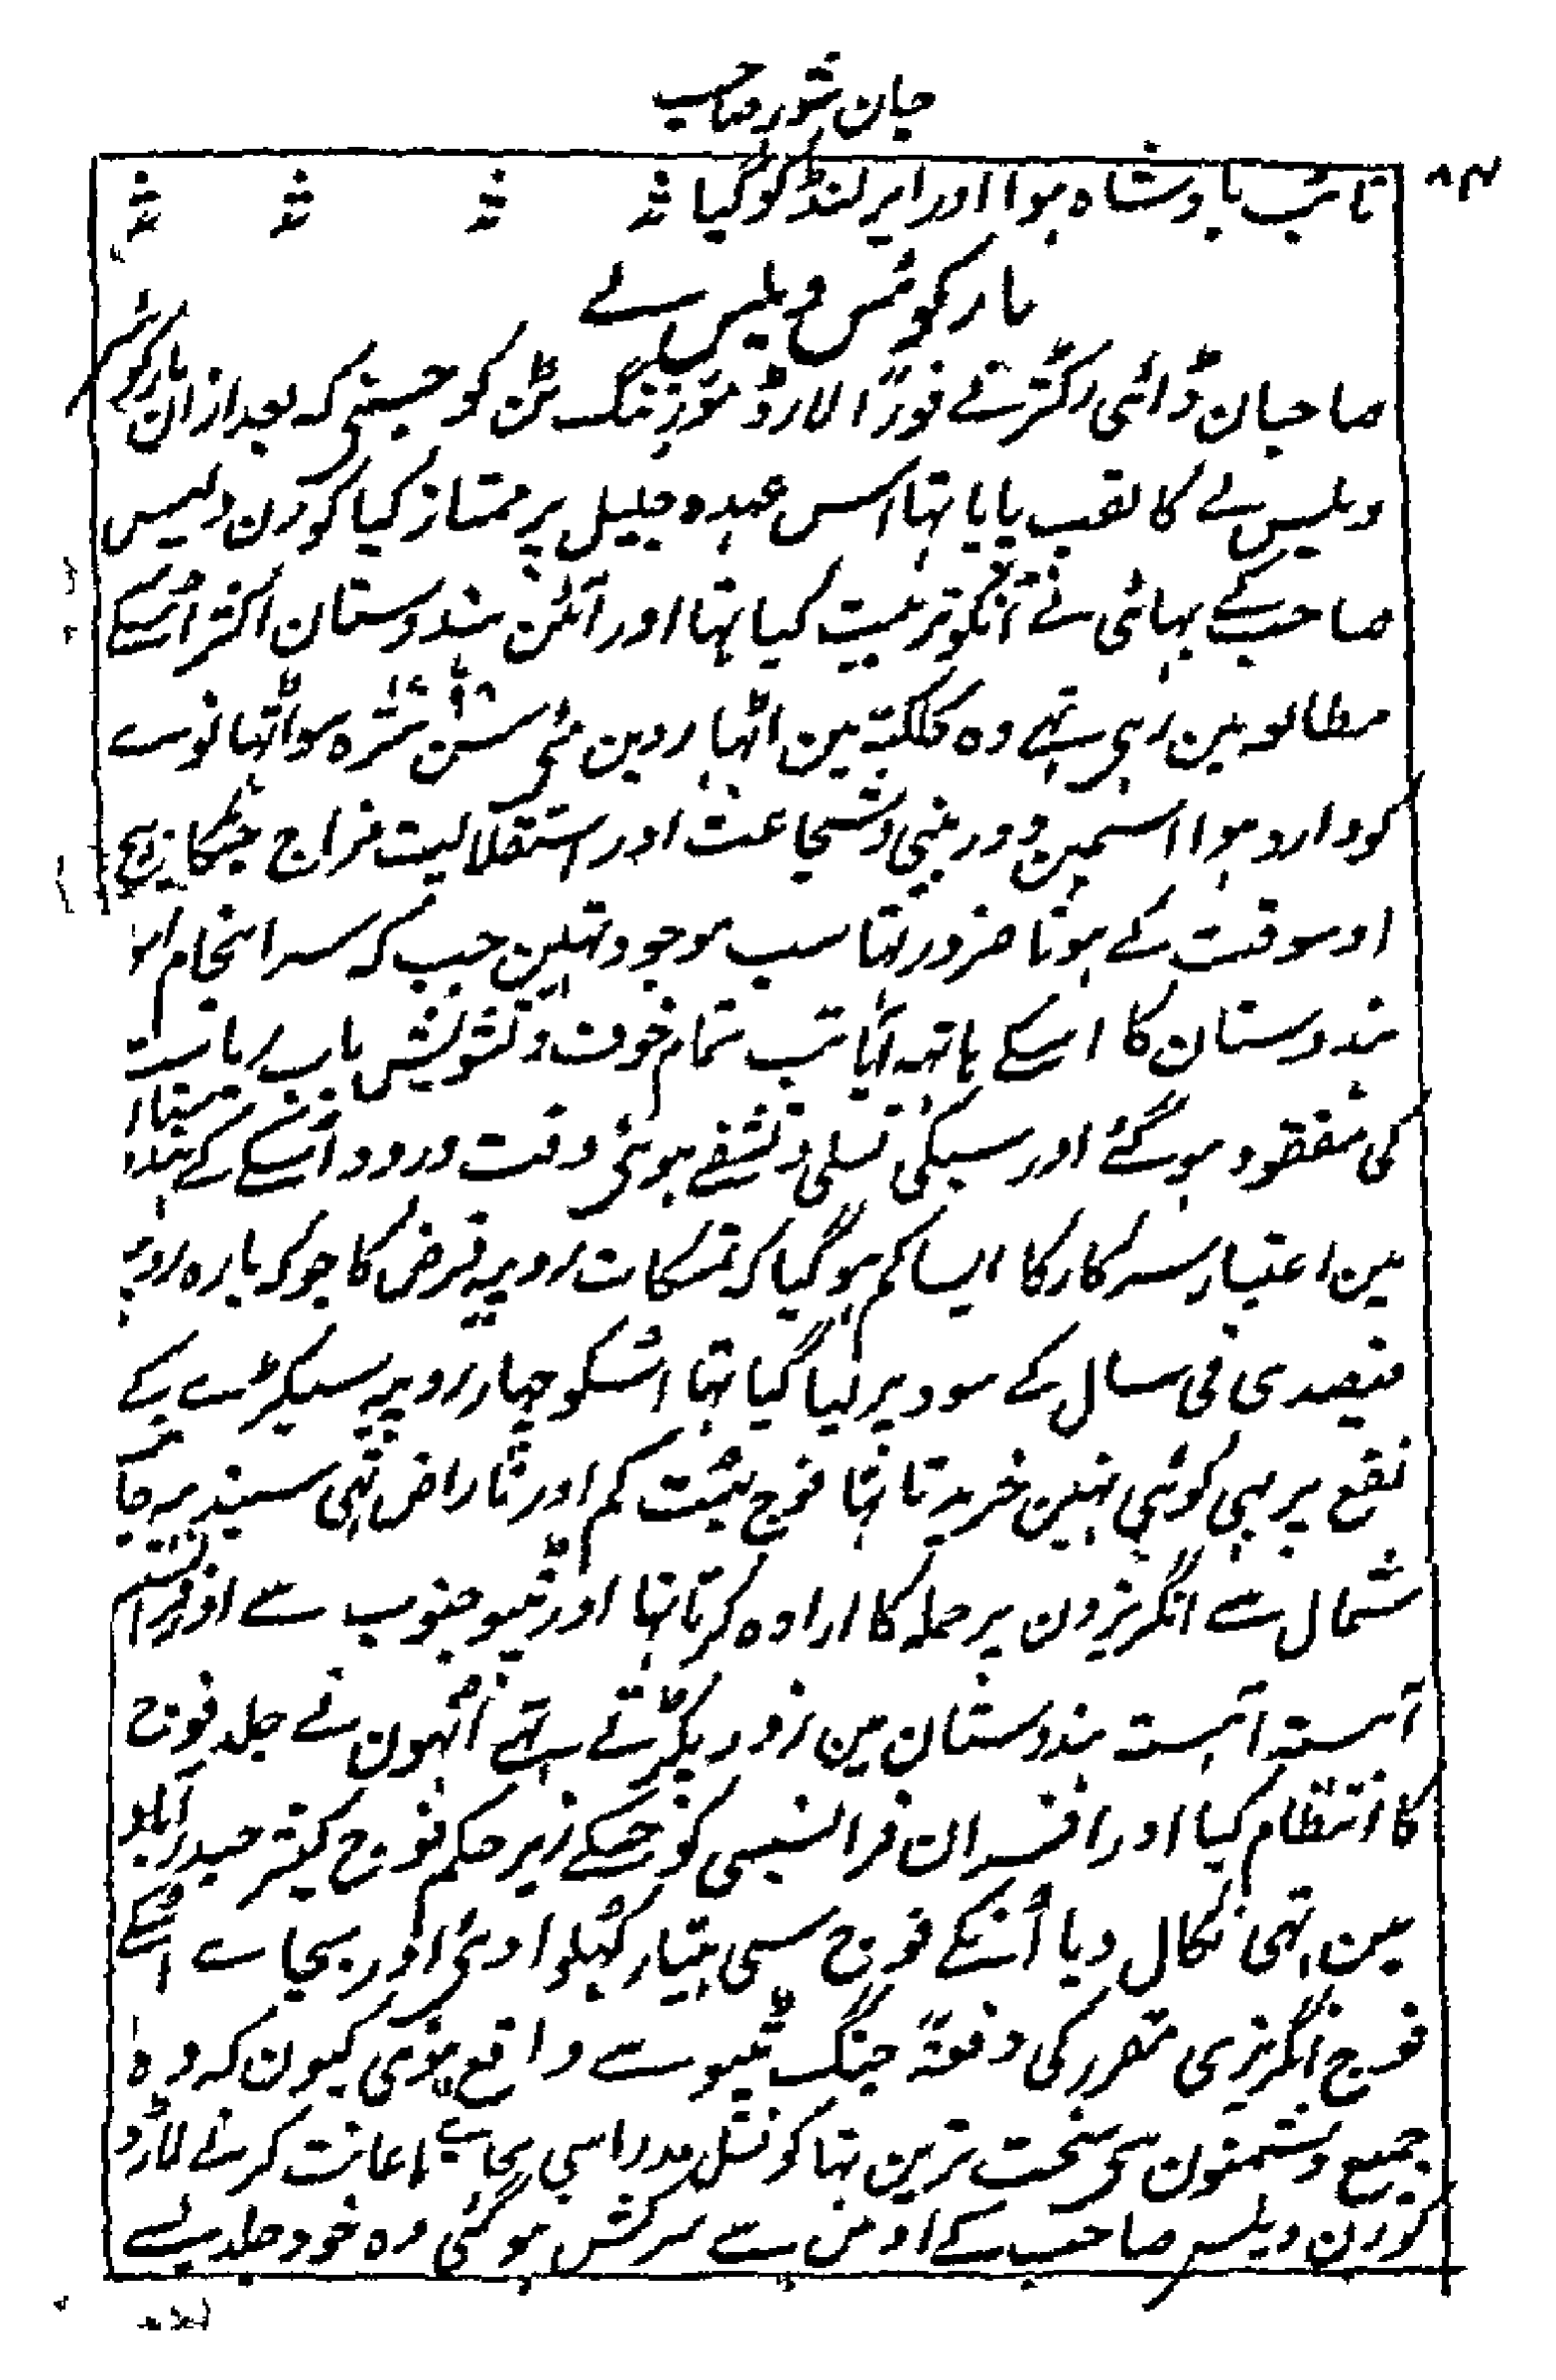 جان شور صاحب
۸۴
نائب بادشاہ ہوا اور ایرلنڈ کو گیا
مارکوئس ویلیس لے
صاحبان ڈائی رکٹر نے فوراً لارڈ مورننگ ٹن کو جسنی کہ بعد ازان مارکوئس
ویلیس لے کا لقب پایا تہا اس عہدہ جلیل پر ممتاز کیا کورن ولیس
صاحب کے بہائی نے انکو تربیت کیا تہا اور آئن ہندوستان اکثر اسکے
مطالعہ مین رہی تہے وہ کلکتہ مین اٹہاروین مئی سن ۱۷۹۸ سترہ سو اٹہانوے
کو وارد ہوا اسمین دور بینی و شجاعت اور استقلالیت مزاج جنکا بیچ
اوسوقت کے ہونا ضرور تہا سب موجود تہین جب کہ سرانجام امور
ہندوستان کا اسکے ہاتہ آیا تب تمام خوف و تشویش باب ریاست
کی مفقود ہو گئے اور سبکی تسلی و تشفے ہوئی وقت ورود اسکے کے ہندوستان
مین اعتبار سرکار کا ایسا کم ہو گیا کہ تمسکات روپیہ قرض کا جو کہ بارہ روپیہ
فیصدی فی سال کے سود پر لیا گیا تہا اسکو چہار روپیہ سیکڑے کے
نفع پر بہی کوئی نہین خریدتا تہا فوج بہت کم اور ناراض تہی سیندیہ جا
شمال سے انگریزون پر حملہ کا ارادہ کرتا تہا اور ٹیپو جنوب سے اور فرانسیس
آہستہ آہستہ ہندوستان مین زور پکڑتے تہے انہون نے جلد فوج
کا انتظام کیا اور افسران فرانسیسی کو جسکے زیر حکم فوج کثیر حیدرآباد
مین تہی نکال دیا انکے فوج سی ہتیار کہلوا دئی اور بجاے اسکے
فوج انگریزی مقرر کی دفعۃً جنگ ٹیپو سے واقع ہوئی کیون کہ وہ
جمیع دشمنون سی سخت ترین تہا کونشل مدراسی بجاے اعانت کرنے لارڈ
کورن ویلس صاحب کے اومن سے سرکش ہو گئی وہ خود جلد یسے